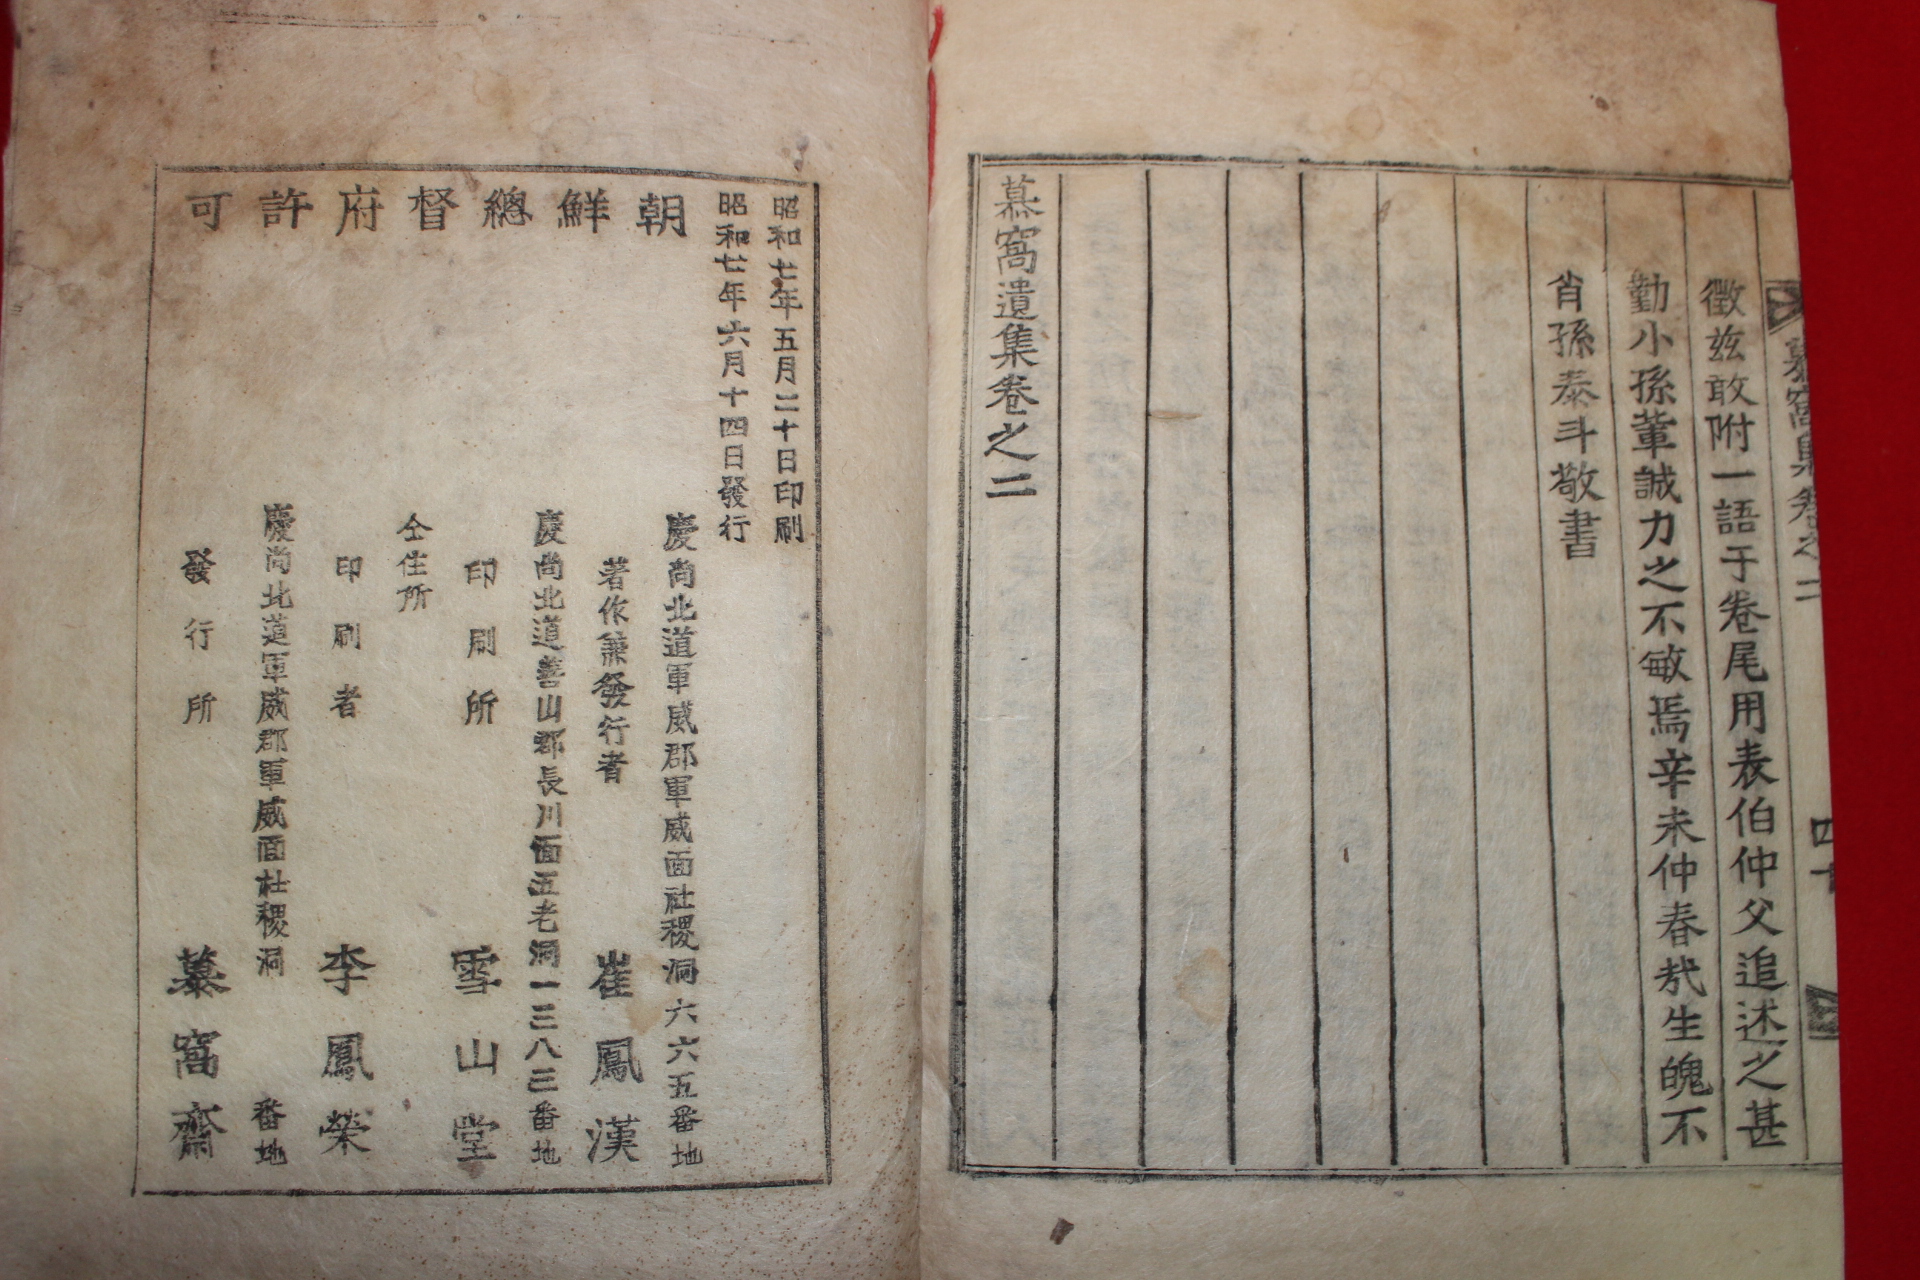 慕窩集卷之二 四十
徵玆敢附一語于卷尾用表伯仲父追述之甚
勤小孫蕫誠力之不敏焉辛未仲春㦲生魄不
肖孫泰斗敬書
慕窩遺集卷之二
昭和七年五月二十日印刷
昭和七年六月十四日發行
朝鮮總督府許可
慶尙北道軍威郡軍威面社稷洞六六五番地
著作兼發行者 崔鳳漢
慶尙北道善山郡長川面五老洞一三八三番地
印刷所 雪山堂
仝住所
印刷者 李鳳榮
慶尙北道軍威郡軍威面社稷洞 番地
發行所 慕窩齋